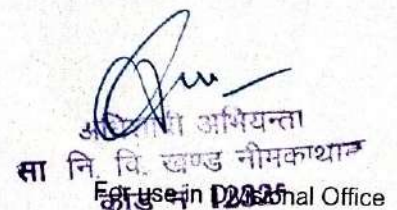 अधिशाषी अभियन्ता
सा नि. वि. खण्ड नीमकाथाना
कोड नं
For use in Divisional Office